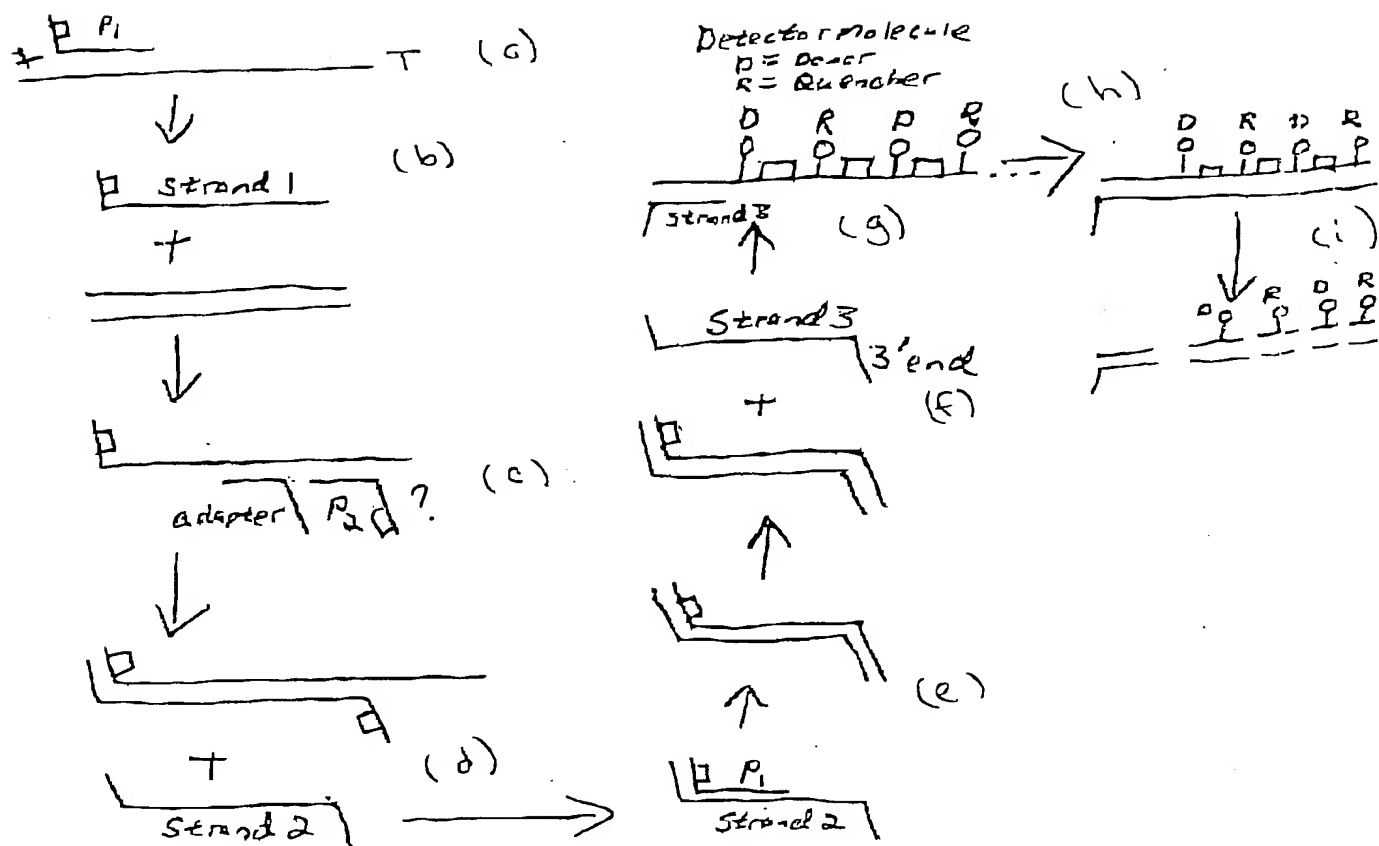 P1
+
T (a)
(b)
Strand 1
+
(c)
adapter P2 ?
(d)
+
Strand 2
P1
Strand 2
(e)
+
(f)
Strand 3
3'end
Strand 3
(g)
Detector molecule
D = Donor
R = Quencher
D R D R
(h)
D R D R
(i)
D R D R